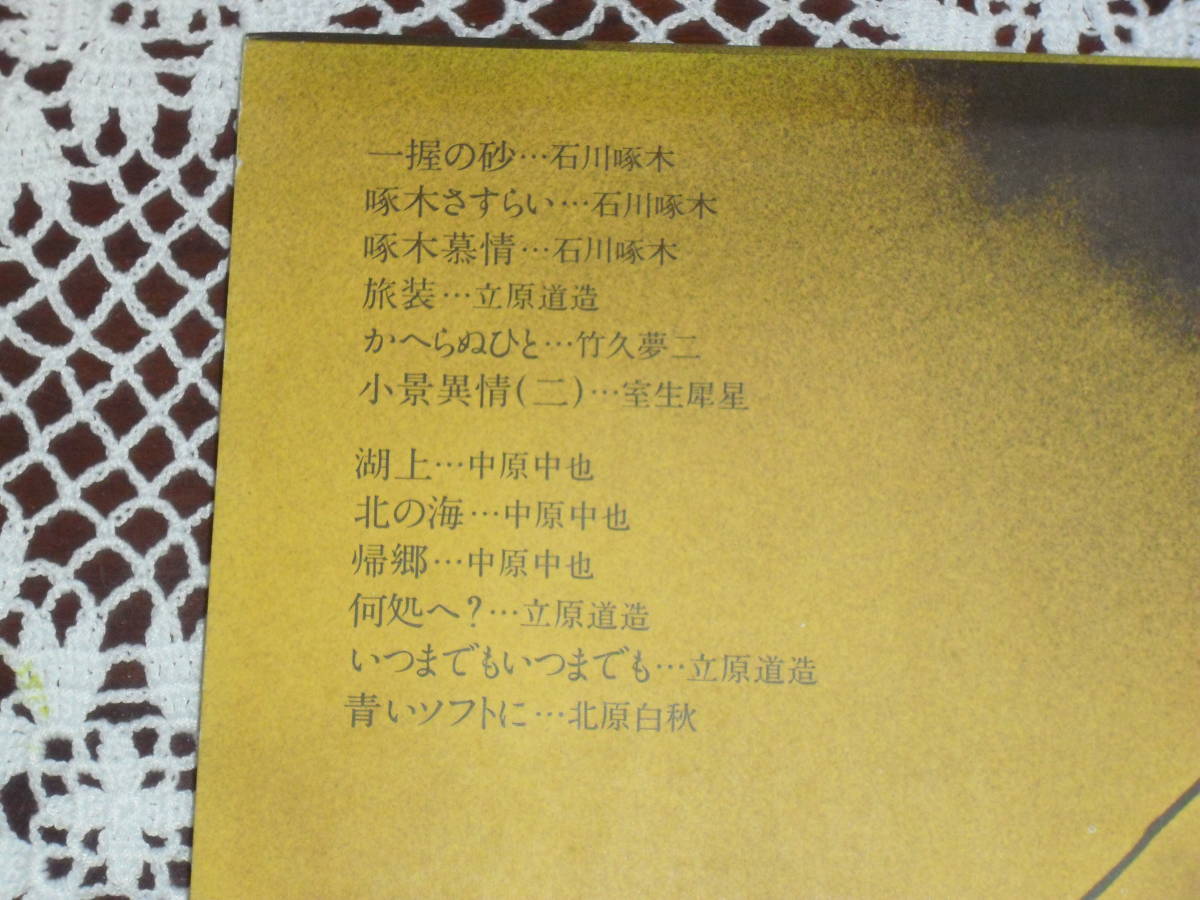 一握の砂…石川啄木
啄木さすらい…石川啄木
啄木慕情…石川啄木
旅装…立原道造
かへらぬひと…竹久夢二
小景異情(二)…室生犀星
湖上…中原中也
北の海…中原中也
帰郷…中原中也
何処へ?…立原道造
いつまでもいつまでも…立原道造
青いソフトに…北原白秋